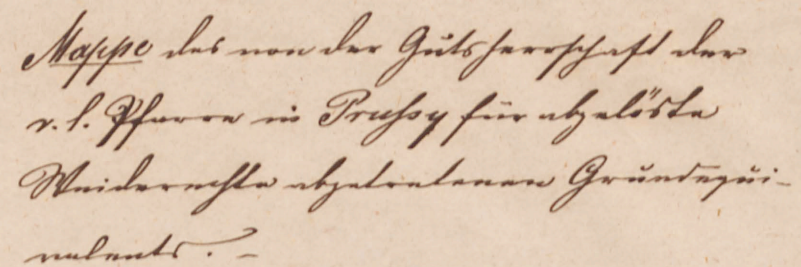 Mappe des von der Gutsherrschaft der
r. l. Pfarre in Prussy für abgelöste
Weiderechte abgetretenen Grundequi-
valents. –